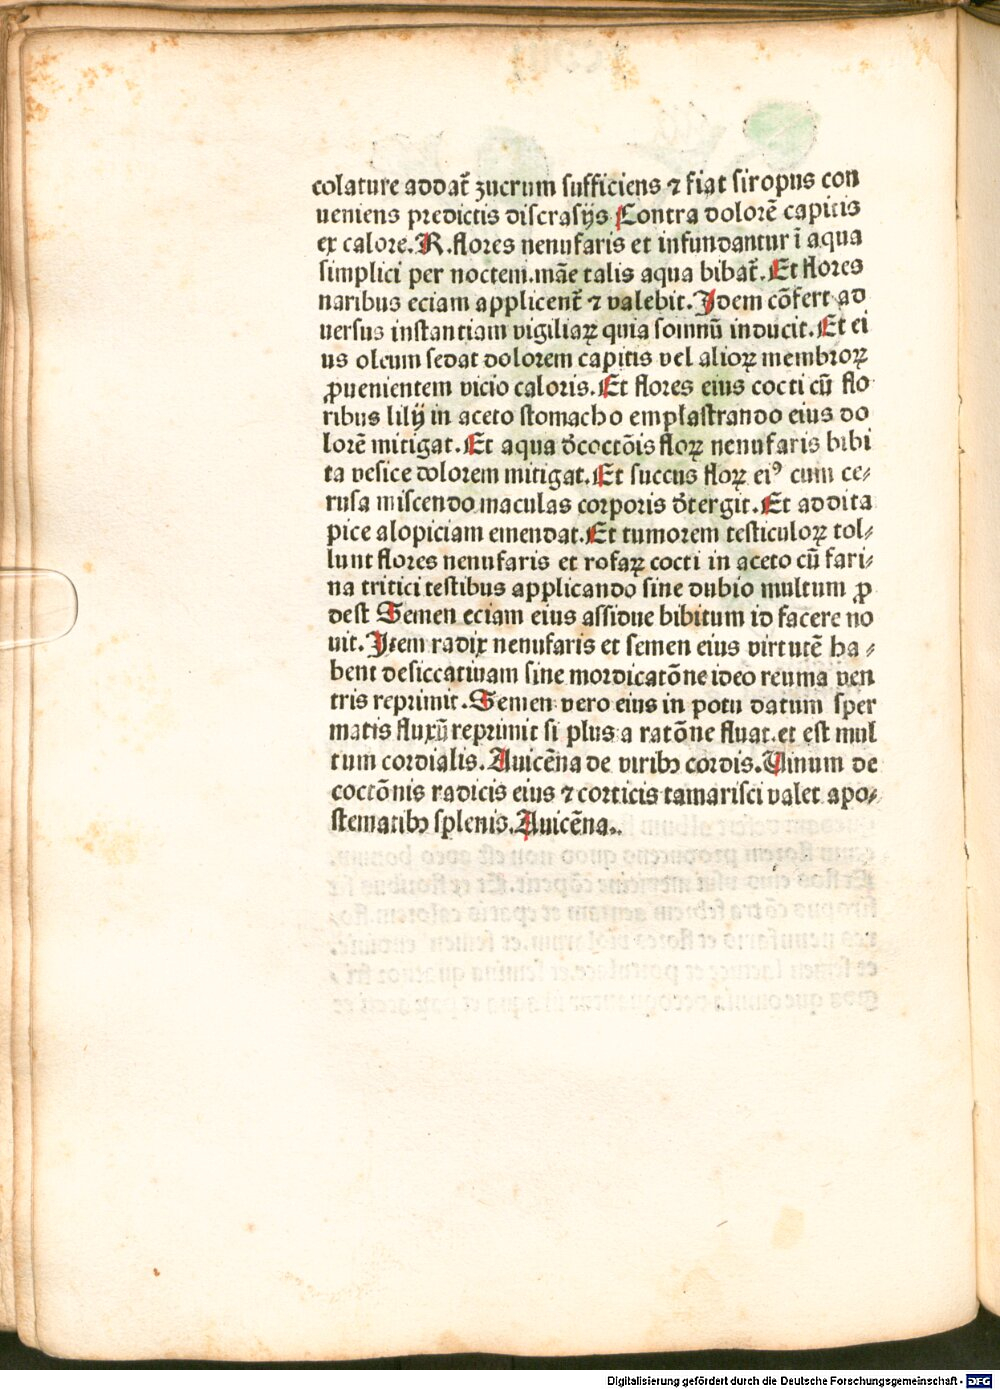 colature addat̃ zucrum sufficiens ⁊ fiat siropus con
ueniens predictis discrasijs Contra dolorẽ capitis
ex calore. R. flores nenufaris et infundantur ĩ aqua
simplici per noctem. mãe talis aqua bibat̃. Et flores
naribus eciam applicent̃ ⁊ valebit. Idem cõfert ad
uersus instantiam vigiliaꝝ quia somnũ inducit. Et ei
us oleum sedat dolorem capitis vel alioꝝ membroꝝ
ꝓuenientem vicio caloris. Et flores eius cocti cũ flo
ribus lilij in aceto stomacho emplastrando eius do
lorẽ mitigat. Et aqua d̾coctõis floꝝ nenufaris bibi
ta vesice dolorem mitigat. Et succus floꝝ eiꝰ cum ce⸗
rusa miscendo maculas corporis d̾tergit. Et addita
pice alopiciam emendat. Et tumorem testiculoꝝ tol⸗
lunt flores nenufaris et rosaꝝ cocti in aceto cũ fari⸗
na tritici testibus applicando sine dubio multum ꝓ
dest Semen eciam eius assidue bibitum id facere no
uit. Item radix nenufaris et semen eius virtutẽ ha⸗
bent desiccatiuam sine mordicatõne ideo reuma ven
tris reprimit. Semen vero eius in potu datum sper
matis fluxũ reprimit si plus a ratõne fluat. et est mul
tum cordialis. Auicẽna de viribꝫ cordis. Vinum de
coctõnis radicis eius ⁊ corticis tamarisci valet apo⸗
stematibꝫ splenis. Auicẽna..
Digitalisierung gefördert durch die Deutsche Forschungsgemeinschaft - DFG